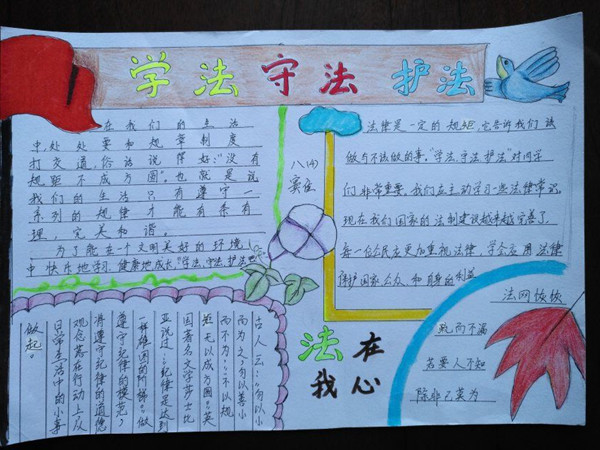 学法守法护法
在我们的生活
中,处处要和规章制度
打交道,俗话说得好:“没有
规距不成方圆”。也就是说
我们的生活只有遵守一
系列的规律才能有条有
理,完美和谐。
为了能在一个文明美好的环境
中快乐地学习、健康地成长,“学法、守法、护法
八(4)
法律是一定的规矩,它告诉我们该
做与不该做的事。“学法、守法、护法”对同学
们非常重要。我们应主动学习一些法律常识。
现在我们国家的法制建设越来越完善了,
每一位公民应更加重视法律,学会应用法律
保护国家、公众、和自身的利益
古人云:“勿以小
而为之,勿以善小
而不为”“不以规
矩无以成方圆”。英
国著名文学莎士比
亚说过:“纪律是达到
一切雄图的阶梯”。做
遵守纪律的模范,
将遵守纪律的道德
观念落在行动上,从
日常生活中的小事
做起。
法在
我心
法网恢恢
疏而不漏
若要人不知
除非己莫为